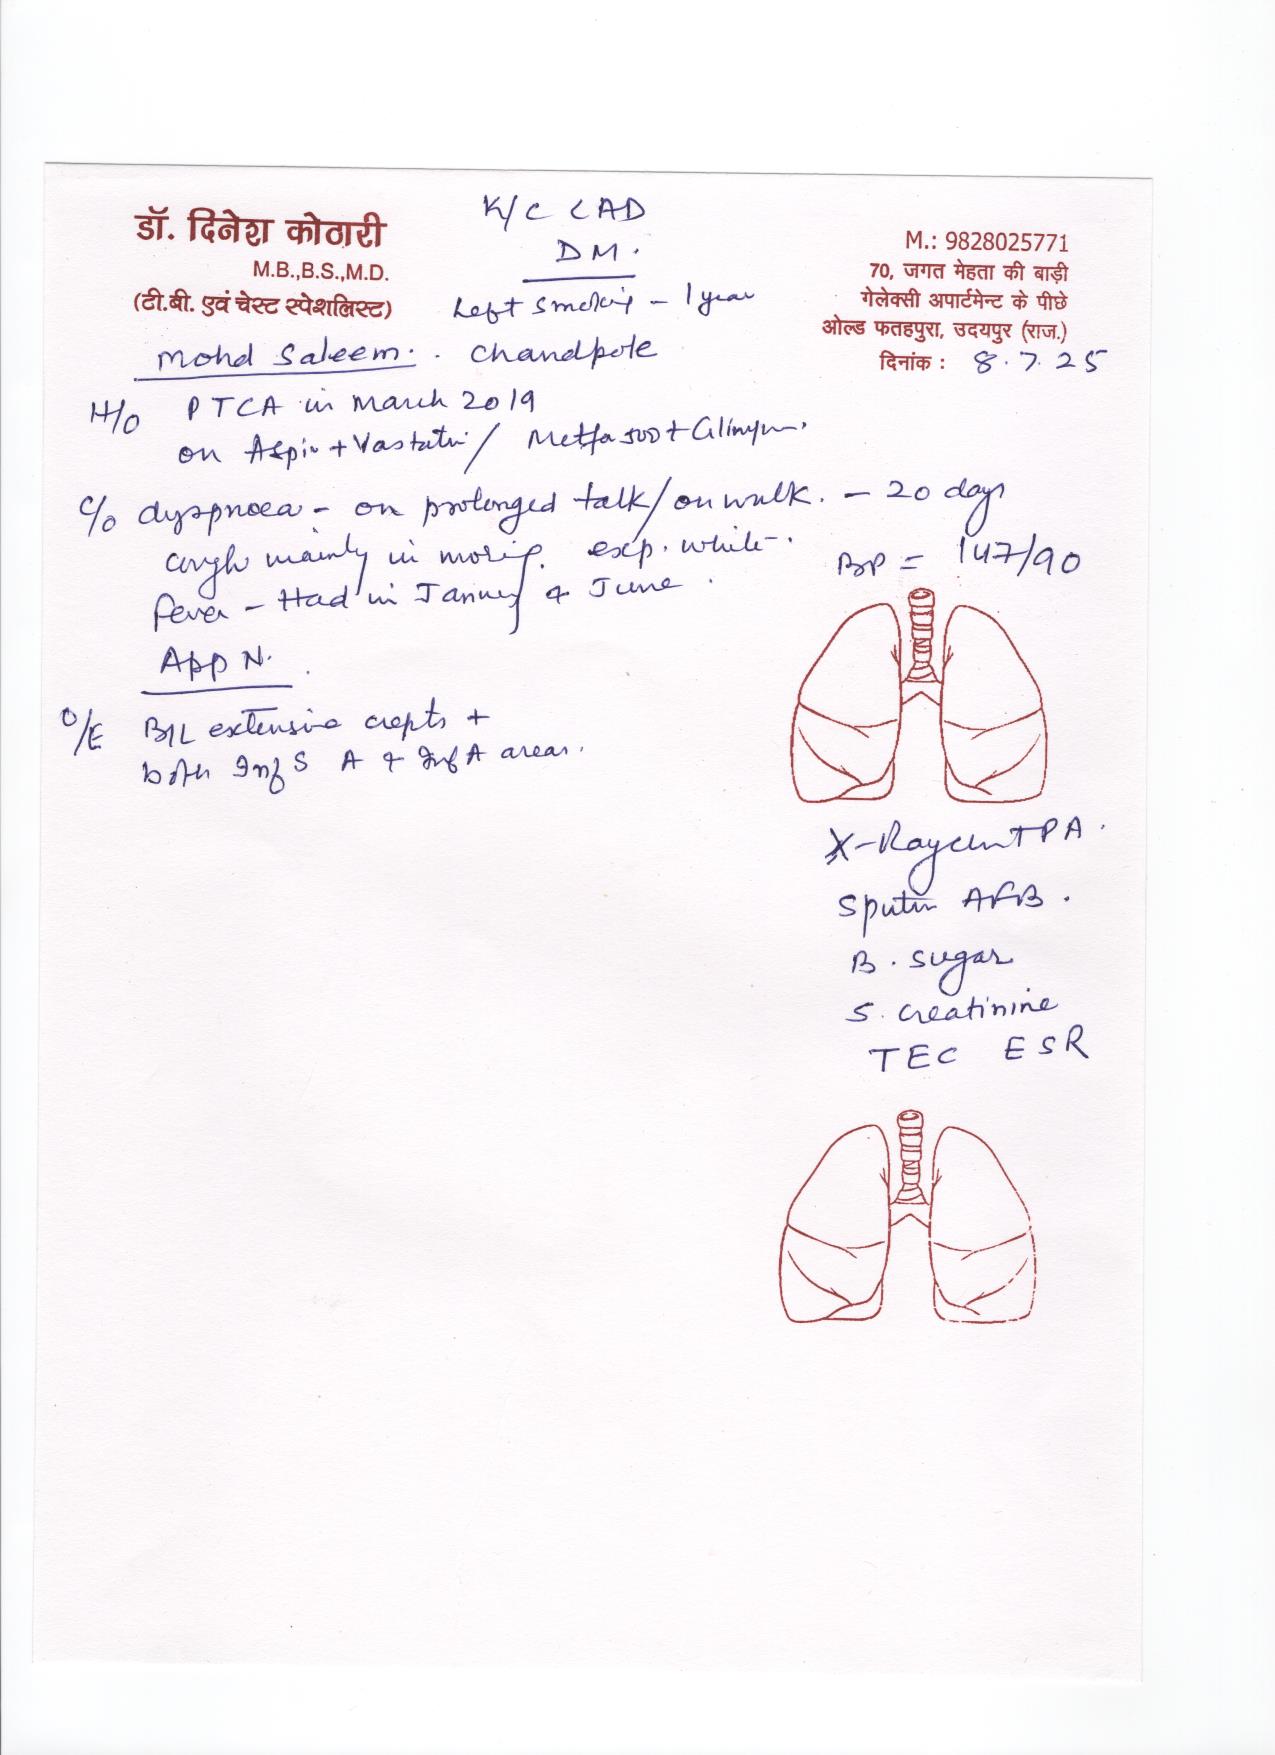 डॉ. दिनेश कोठारी
M.B.,B.S.,M.D.
(टी.बी. एवं चेस्ट स्पेशलिस्ट)
K/C CAD
DM.
Left smoking - 1 year
M.: 9828025771
70, जगत मेहता की बाड़ी
गेलेक्सी अपार्टमेन्ट के पीछे
ओल्ड फतहपुरा, उदयपुर (राज.)
दिनांक : 8.7.25
Mohd Saleem. . Chandpole
H/O PTCA in March 2019
on Aspin + Vastatin / Metfo 500 +
C/o dyspnoea - on prolonged talk/on walk. - 20 days
cough mainly in morig. exp. white-.
BP = 147/90
Fever - Had in Januay & June.
App N.
O/E B/L extensive crepts +
both Inf S A & Inf A areas.
X-Ray PA.
Sputum AFB.
B. sugar
S. creatinine
TEC ESR